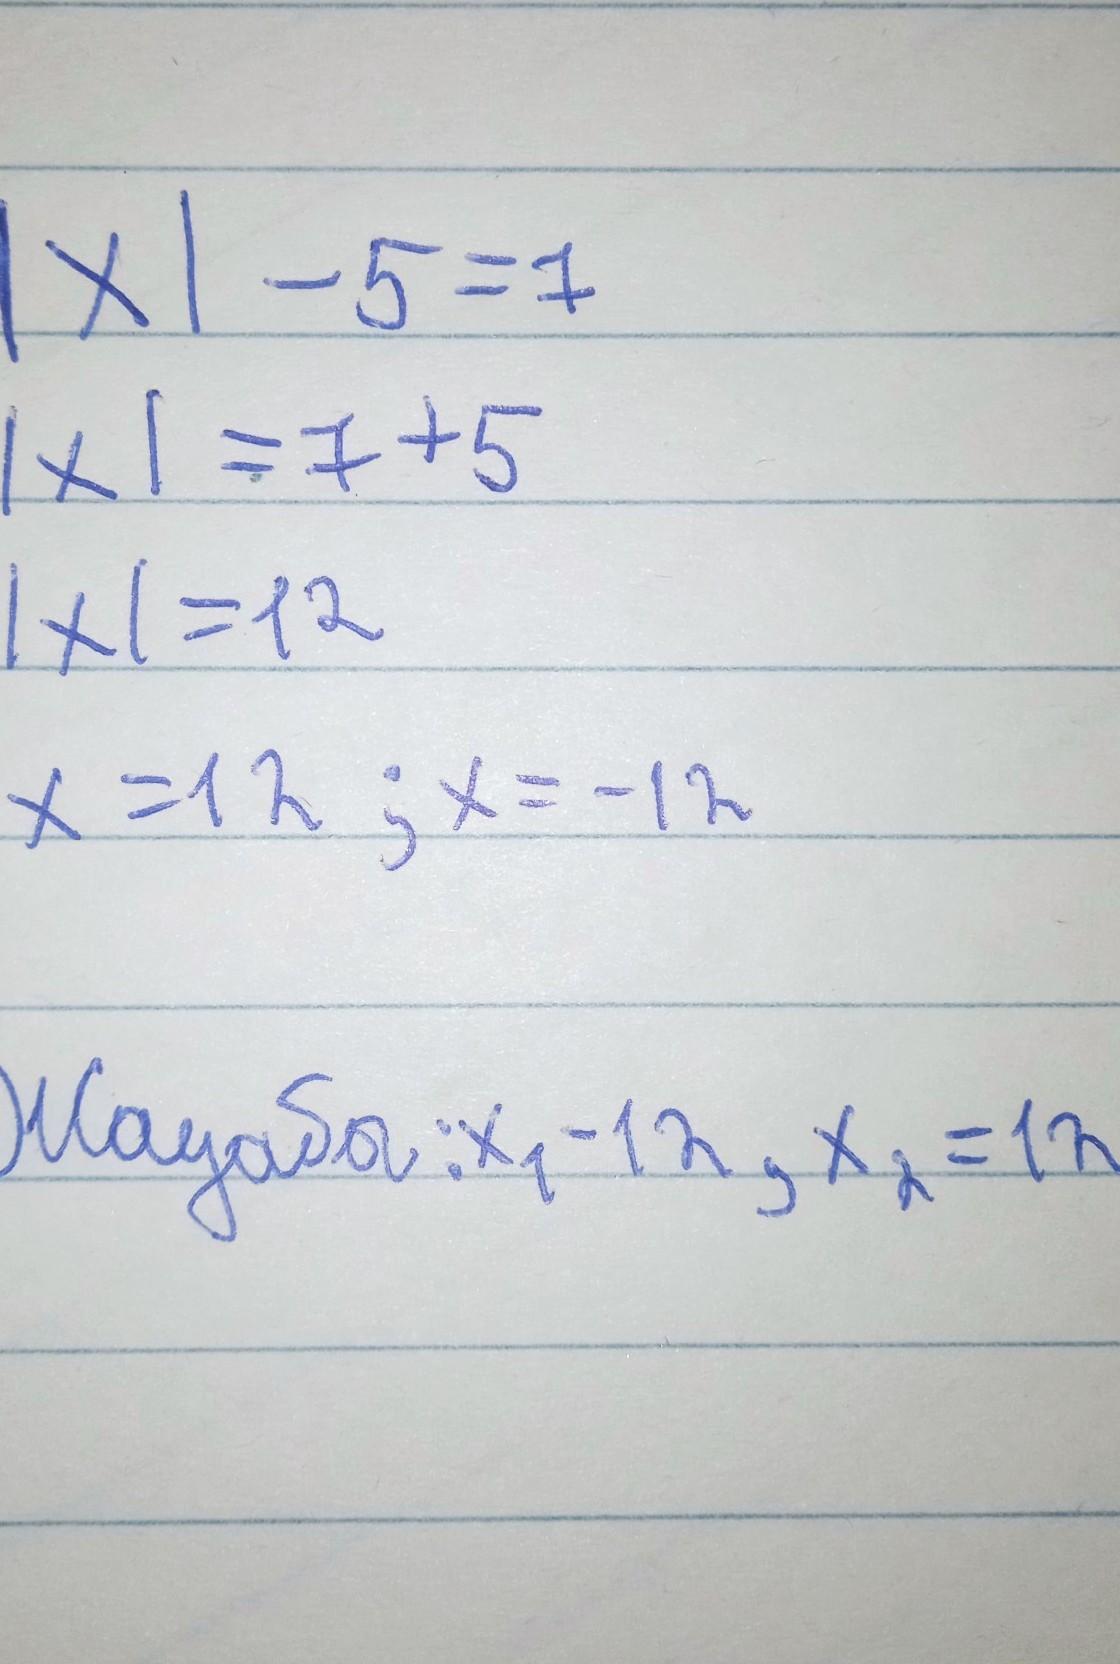 |x| - 5 = 7
|x| = 7 + 5
|x| = 12
x = 12 ; x = -12
Жауабы: x₁ - 12, x₂ = 12